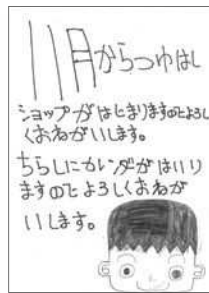 11月からつゆはし
ショップがはじまりますのでよろし
くおねがいします。
ちらしにカレンダーがはいり
ますのでよろしくおねが
いします。